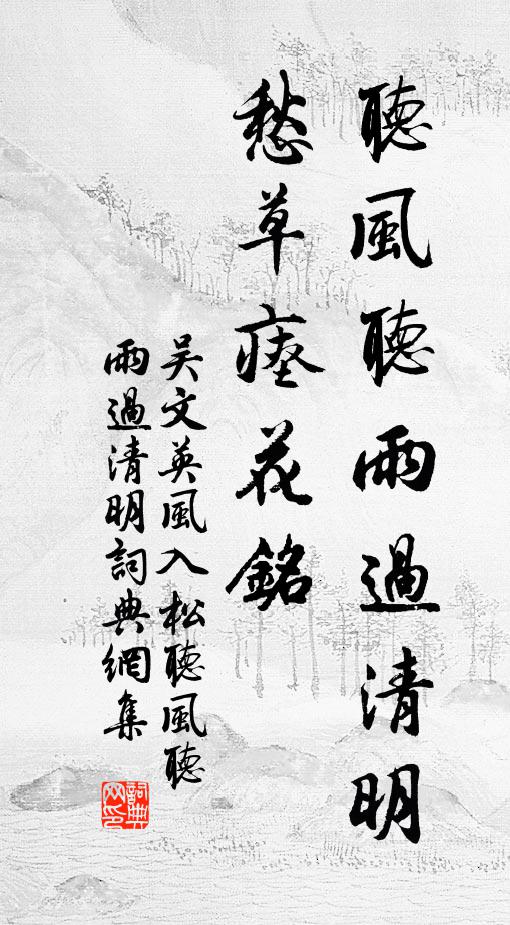 聽風聽雨過清明
愁草瘞花銘
吴文英風入松聽風聽
雨過清明詞典網集
詞典
网印